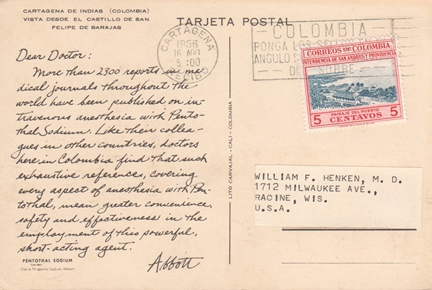 CARTAGENA DE INDIAS (COLOMBIA)
VISTA DESDE EL CASTILLO DE SAN
FELIPE DE BARAJAS
TARJETA POSTAL
Dear Doctor:
More than 2300 reports in me-
dical journals throughout the
world have been published on in-
travenous anesthesia with Pento-
thal Sodium. Like their collea-
gues in other countries, doctors
here in Colombia find that such
exhaustive reference, covering
every aspect of anesthesia with Pen-
tothal, mean greater convenience,
safety and effectiveness in the
employment of this powerful,
short-acting agent.
Abbott
PENTOTHAL SODIUM
LITO CARVAJAL - CALI - COLOMBIA
CARTAGENA
1956
5:00
COLOMBIA
PONGA
ANGULO
CORREOS DE COLOMBIA
INTENDENCIA DE SAN ANDRES Y PROVIDENCIA
PAISAJE DEL PUERTO
5 CENTAVOS 5
WILLIAM F. HENKEN, M. D.
1712 MILWAUKEE AVE.,
RACINE, WIS.
U.S.A.